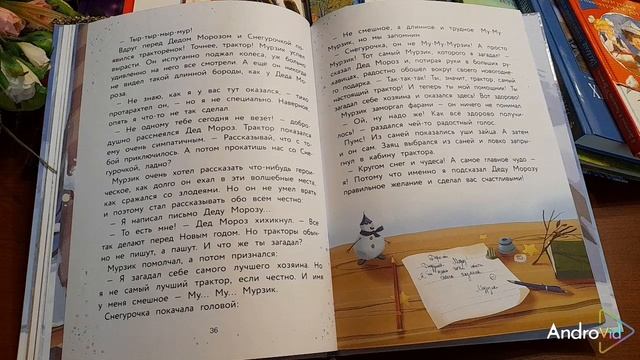 Тыр-тыр-мыр-мур!
Вдруг перед Дедом Морозом и Снегурочкой по-
явился тракторёнок! Точнее, трактор! Мурзик успел
вырасти. Он испуганно поджал колёса, уж больно
удивлённо на него все смотрели. А ещё он никогда
не видел такой длинной бороды, как у Деда Мо-
роза.
– Не знаю, как я у вас тут оказался, – тихо
протарахтел он, – но я не специально. Наверное,
опять я что-то не так сделал.
– Не одному тебе сегодня не везёт! – добро-
душно рассмеялся Дед Мороз. Трактор показался
ему очень симпатичным. – Рассказывай, что с то-
бой приключилось. А потом прокатишь нас со Сне-
гурочкой, ладно?
Мурзик очень хотел рассказать что-нибудь герои-
ческое, как долго он ехал в эти волшебные места,
как сражался со злодеями. Но он не умел врать
и поэтому стал рассказывать обо всём честно:
– Я написал письмо Деду Морозу...
– То есть мне! – Дед Мороз хихикнул. – Все
так делают перед Новым годом. Но тракторы обыч-
но не пишут, а пашут. И что же ты загадал?
Мурзик помолчал, а потом признался:
– Я загадал себе самого лучшего хозяина. Но
я не самый лучший трактор, если честно. И имя
у меня смешное – Му... Му... Мурзик.
Снегурочка покачала головой:
36
– Не смешное, а длинное и трудное Му-Му
Мурзик, но мы запомним.
– Снегурочка, он не Му-Му-Мурзик! А просто
Мурзик! Тот самый Мурзик, которого я загадал! –
сказал Дед Мороз и, потирая руки в больших ру-
кавицах, радостно обошёл вокруг своего новогодне-
го подарка. – Так-так-так! Ты, значит, трактор, самый
настоящий трактор! И теперь ты мой помощник! Ты
загадал себе хозяина и оказался здесь! Вот здорово!
Мурзик заморгал фарами – он ничего не понимал.
– Ой, ну надо же! Как всё здорово получи-
лось! – раздался чей-то радостный голос.
Пумс! Из саней показались уши зайца. А затем
и он сам. Заяц выбрался из саней и ловко запры-
нул в кабину трактора.
– Кругом снег и чудеса! А самое главное чудо –
я! Потому что именно я подсказал Деду Морозу
правильное желание и сделал вас счастливыми!
AndroVid